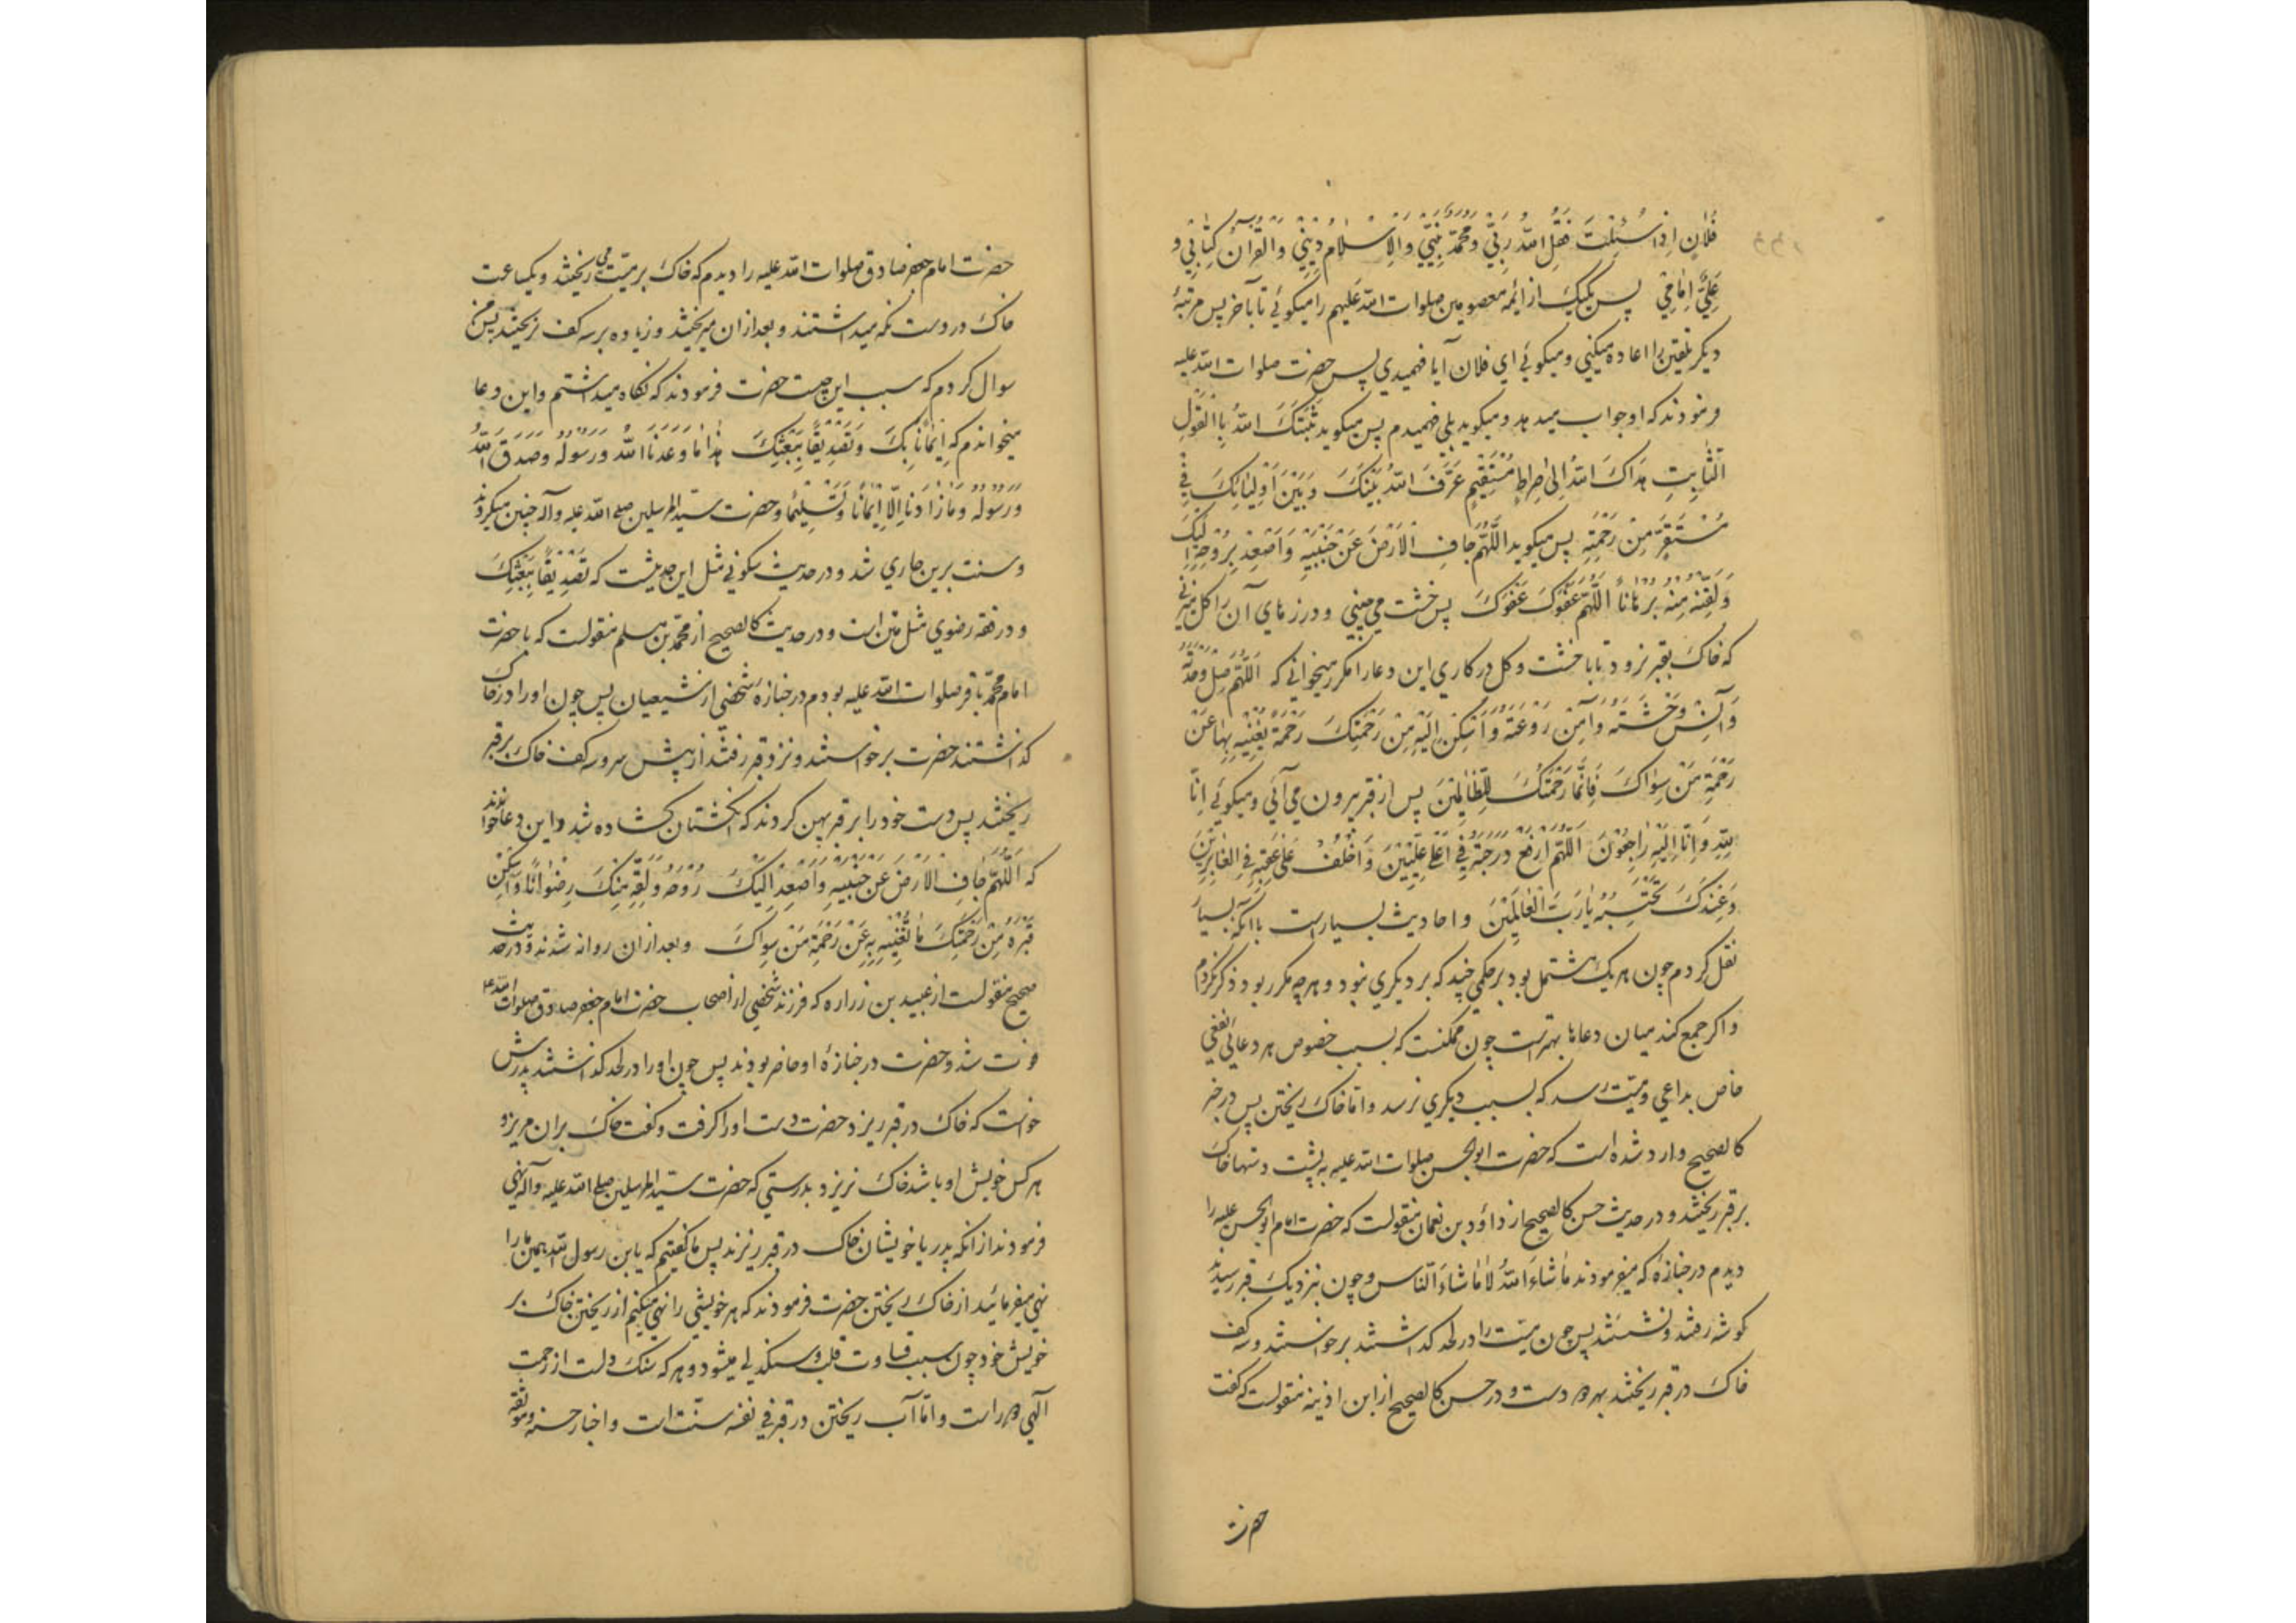 فُلَانِ اِذَا سُئِلْتَ فَقُلِ اللّهُ رَبِّي وَمُحَمَّدٌ نَبِيِّي وَالْاِسْلَامُ دِيْنِي وَالْقُرْآنُ كِتَابِي و
عَلِيٌّ اِمَامِي پس یکیک از ائمه معصومین صلوات الله علیهم را میکوئي تا بآخر پس مرتبهٔ
دیکر تلقین را اعاده میکنی و میکوئي اي فلان آیا فهمیدي پس حضرت صلوات الله علیه
فرمودند که او جواب میدهد و میکوید بلي فهمیدم پس میکوید ثَبَّتَكَ اللّهُ بِالْقَوْلِ
الثَّابِتِ هَدَاكَ اللّهُ اِلٰى صِرَاطٍ مُسْتَقِيْمٍ عَرَّفَ اللّهُ بَيْنَكَ وَبَيْنَ اَوْلِيَائِكَ فِي
مُسْتَقَرٍّ مِنْ رَحْمَتِهِ پس میکوید اَللّهُمَّ جَافِ الْاَرْضَ عَنْ جَنْبَيْهِ وَاَصْعِدْ بِرُوْحِهِ اِلَيْكَ
وَلَقِّنْهُ مِنْهُ بُرْهَانًا اَللّهُمَّ عَفْوَكَ عَفْوَكَ پس خشت مي چیني و درزهاي آن را کل میزني
که خاک بقبر نرود تا با خشت و کل درکاري این دعا را مکرر میخواني که اَللّهُمَّ صِلْ وَحْدَتَهُ
وَآنِسْ وَحْشَتَهُ وَآمِنْ رَوْعَتَهُ وَاَسْكِنْ اِلَيْهِ مِنْ رَحْمَتِكَ رَحْمَةً تُغْنِيْهِ بِهَا عَنْ
رَحْمَةِ مَنْ سِوَاكَ فَاِنَّمَا رَحْمَتُكَ لِلظَّالِمِيْنَ پس از قبر بیرون مي آئي و میکوئي اِنَّا
لِلّهِ وَاِنَّا اِلَيْهِ رَاجِعُوْنَ اَللّهُمَّ ارْفَعْ دَرَجَتَهُ فِي اَعْلٰى عِلِّيِّيْنَ وَاخْلُفْ عَلٰى عَقِبِهِ فِي الْغَابِرِيْنَ
وَعِنْدَكَ نَحْتَسِبُهُ يَا رَبَّ الْعَالَمِيْنَ و احادیث بسیار است با آنکه بسیار
نقل کردم چون هر یک مشتمل بود بر حکمي چند که بر دیکري نبود و هر چه مکرر بود ذکر نکردم
و اکر جمع کند میان دعاها بهتر است چون ممکنست که بسبب خصوص هر دعائي نفعي
خاص بداعي و میّت رسد که بسبب دیکري نرسد و امّا خاک ریختن پس در خبر
کالصحیح وارد شده است که حضرت ابوالحسن صلوات الله علیه به پشت دستها خاک
بر قبر ریختند و در حدیث حسن کالصحیح از داود بن نعمان منقولست که حضرت امام ابوالحسن علیه را
دیدم در جنازهٔ که میفرمودند مَا شَاءَ اللّهُ لَا مَا شَاءَ النَّاسُ و چون نزدیک قبر رسیدند
کوشه رفتند و نشستند پس چون میّت را در لحد کذاشتند برخواستند و سه کف
خاک در قبر ریختند بهر دو دست و در حسن کالصحیح از ابن اذینه منقولست که کفت
حضرت
حضرت امام جعفر صادق صلوات الله علیه را دیدم که خاک بر میّت می ریختند و یکساعت
خاک در دست نکه میداشتند و بعد از ان میریختند و زیاده بر سه کف نریختند پس من
سوال کردم که سبب این چیست حضرت فرمودند که نکاه میداشتم و این دعا
میخواندم که اِيْمَانًا بِكَ وَتَصْدِيْقًا بِبَعْثِكَ هٰذَا مَا وَعَدَنَا اللّهُ وَرَسُوْلُهُ وَصَدَقَ اللّهُ
وَرَسُوْلُهُ وَمَا زَادَنَا اِلَّا اِيْمَانًا وَتَسْلِيْمًا و حضرت سیّد المرسلین صلی الله علیه وآله چنین میکردند
و سنت برین جاري شد و در حدیث سکوني مثل این حدیثست که تَصْدِيْقًا بِبَعْثِكَ
و در فقه رضوي مثل متن است و در حدیث کالصحیح از محمّد بن مسلم منقولست که با حضرت
امام محمّد باقر صلوات الله علیه بودم در جنازهٔ شخصي از شیعیان پس چون او را در خاک
کذاشتند حضرت برخواستند و نزد قبر رفتند از پیش سر و سه کف خاک بر قبر
ریختند پس دست خود را بر قبر پهن کردند که انکشتان کشاده شد و این دعا خواندند
که اَللّهُمَّ جَافِ الْاَرْضَ عَنْ جَنْبَيْهِ وَاَصْعِدْ اِلَيْكَ رُوْحَهُ وَلَقِّهِ مِنْكَ رِضْوَانًا وَاَسْكِنْ
قَبْرَهُ مِنْ رَحْمَتِكَ مَا تُغْنِيْهِ بِهِ عَنْ رَحْمَةِ مَنْ سِوَاكَ و بعد از ان روانه شدند و در حدیث
صحیح منقولست از عبید بن زراره که فرزند شخصي از اصحاب حضرت امام جعفر صادق صلوات الله علیه
فوت شد و حضرت در جنازهٔ او حاضر بودند پس چون او را در لحد کذاشتند پدرش
خواست که خاک در قبر ریزد حضرت دست او را کرفت و کفت خاک بران مریز و
هر کس خویش او باشد خاک نریزد بدرستي که حضرت سیّد المرسلین صلی الله علیه وآله نهي
فرمودند از انکه پدر یا خویشان خاک در قبر ریزند پس ما کفتیم که یابن رسول الله همین ما را
نهي میفرمائید از خاک ریختن حضرت فرمودند که هر خویشي را نهي میکنم از ریختن خاک بر
خویش خود چون سبب قساوت قلب و سنکدلي میشود و هر که سنک دلست از رحمت
آلهي دور است و امّا آب ریختن در قبر في نفسه سنّت است و اخبار حسنه و موثقه